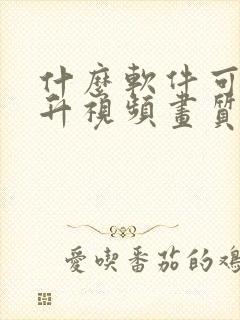 什麼軟件可
升視頻畫質
愛喫番茄的鴻